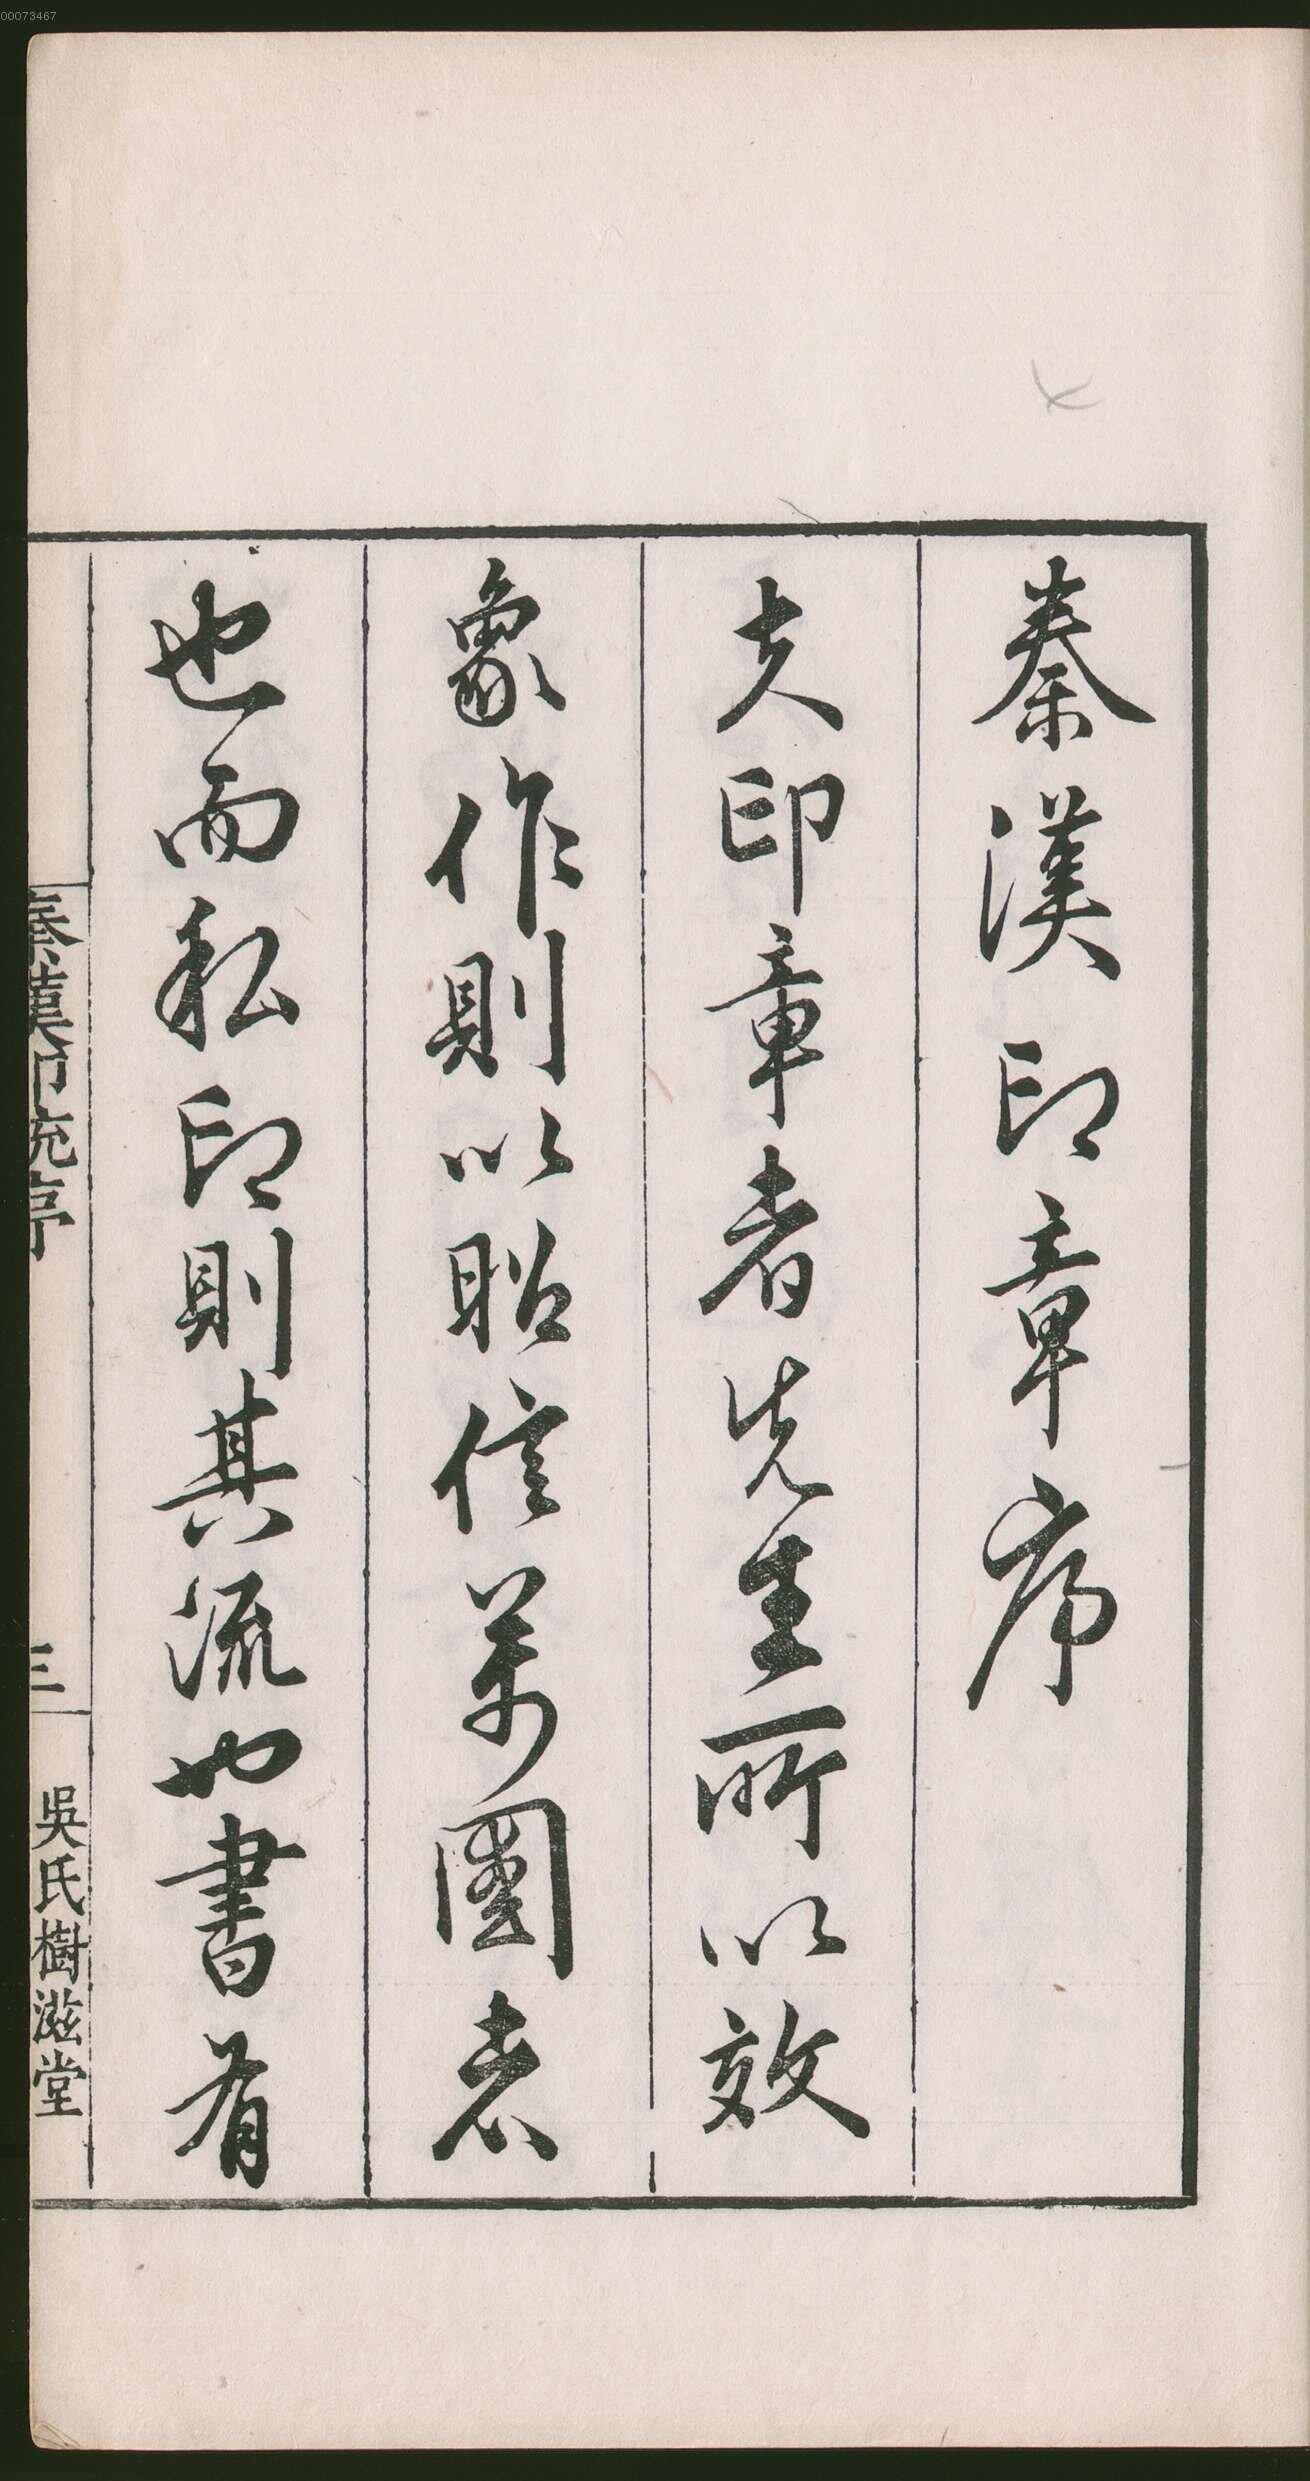 秦漢印章序
夫印章者先生所以效
象作則以昭信萬國者
也而私印則其流也書有
秦漢印統序
三
吳氏樹滋堂
00073467